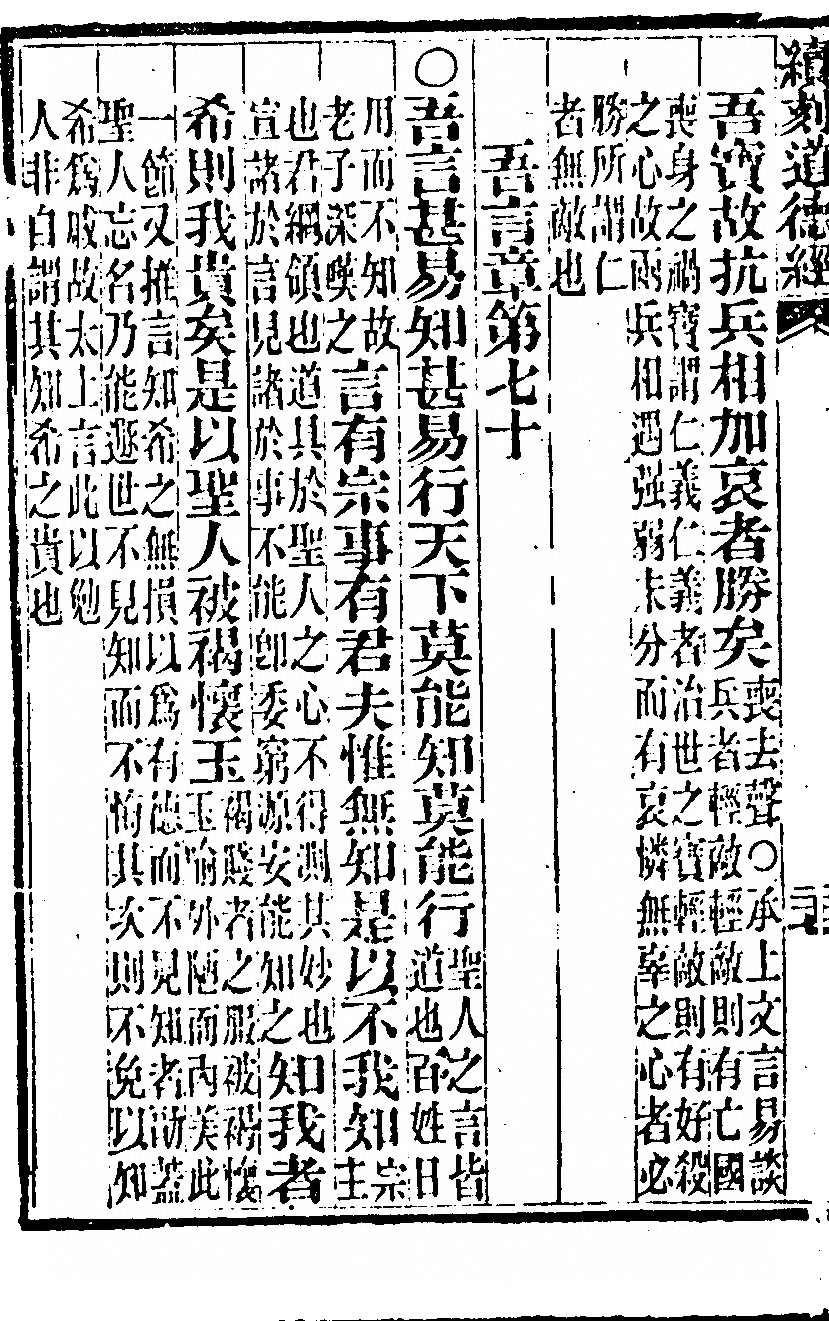 續刻道德經
吾寶故抗兵相加哀者勝矣喪去聲○承上文言易談
兵者輕敵輕敵則有亡國
喪身之禍寶謂仁義仁義者治世之寶輕敵則有好殺
之心故兩兵相遇强弱未分而有哀憐無辜之心者必
勝所謂仁
者無敵也
吾言章第七十
○吾言甚易知甚易行天下莫能知莫能行聖人之言皆
道也百姓日
用而不知故
老子深嘆之
言有宗事有君夫惟無知是以不我知宗
主
也君綱領也道具於聖人之心不得測其妙也
宣諸於言見諸於事不能卽委窮源安能知之
知我者
希則我貴矣是以聖人被褐懷玉褐賤者之服被褐懷
玉喻外陋而內美此
一節又推言知希之無損以爲有德而不見知者勸蓋
聖人忘名乃能遯世不見知而不悔其次則不免以知
希爲戚故太上言此以勉
人非自謂其知希之貴也